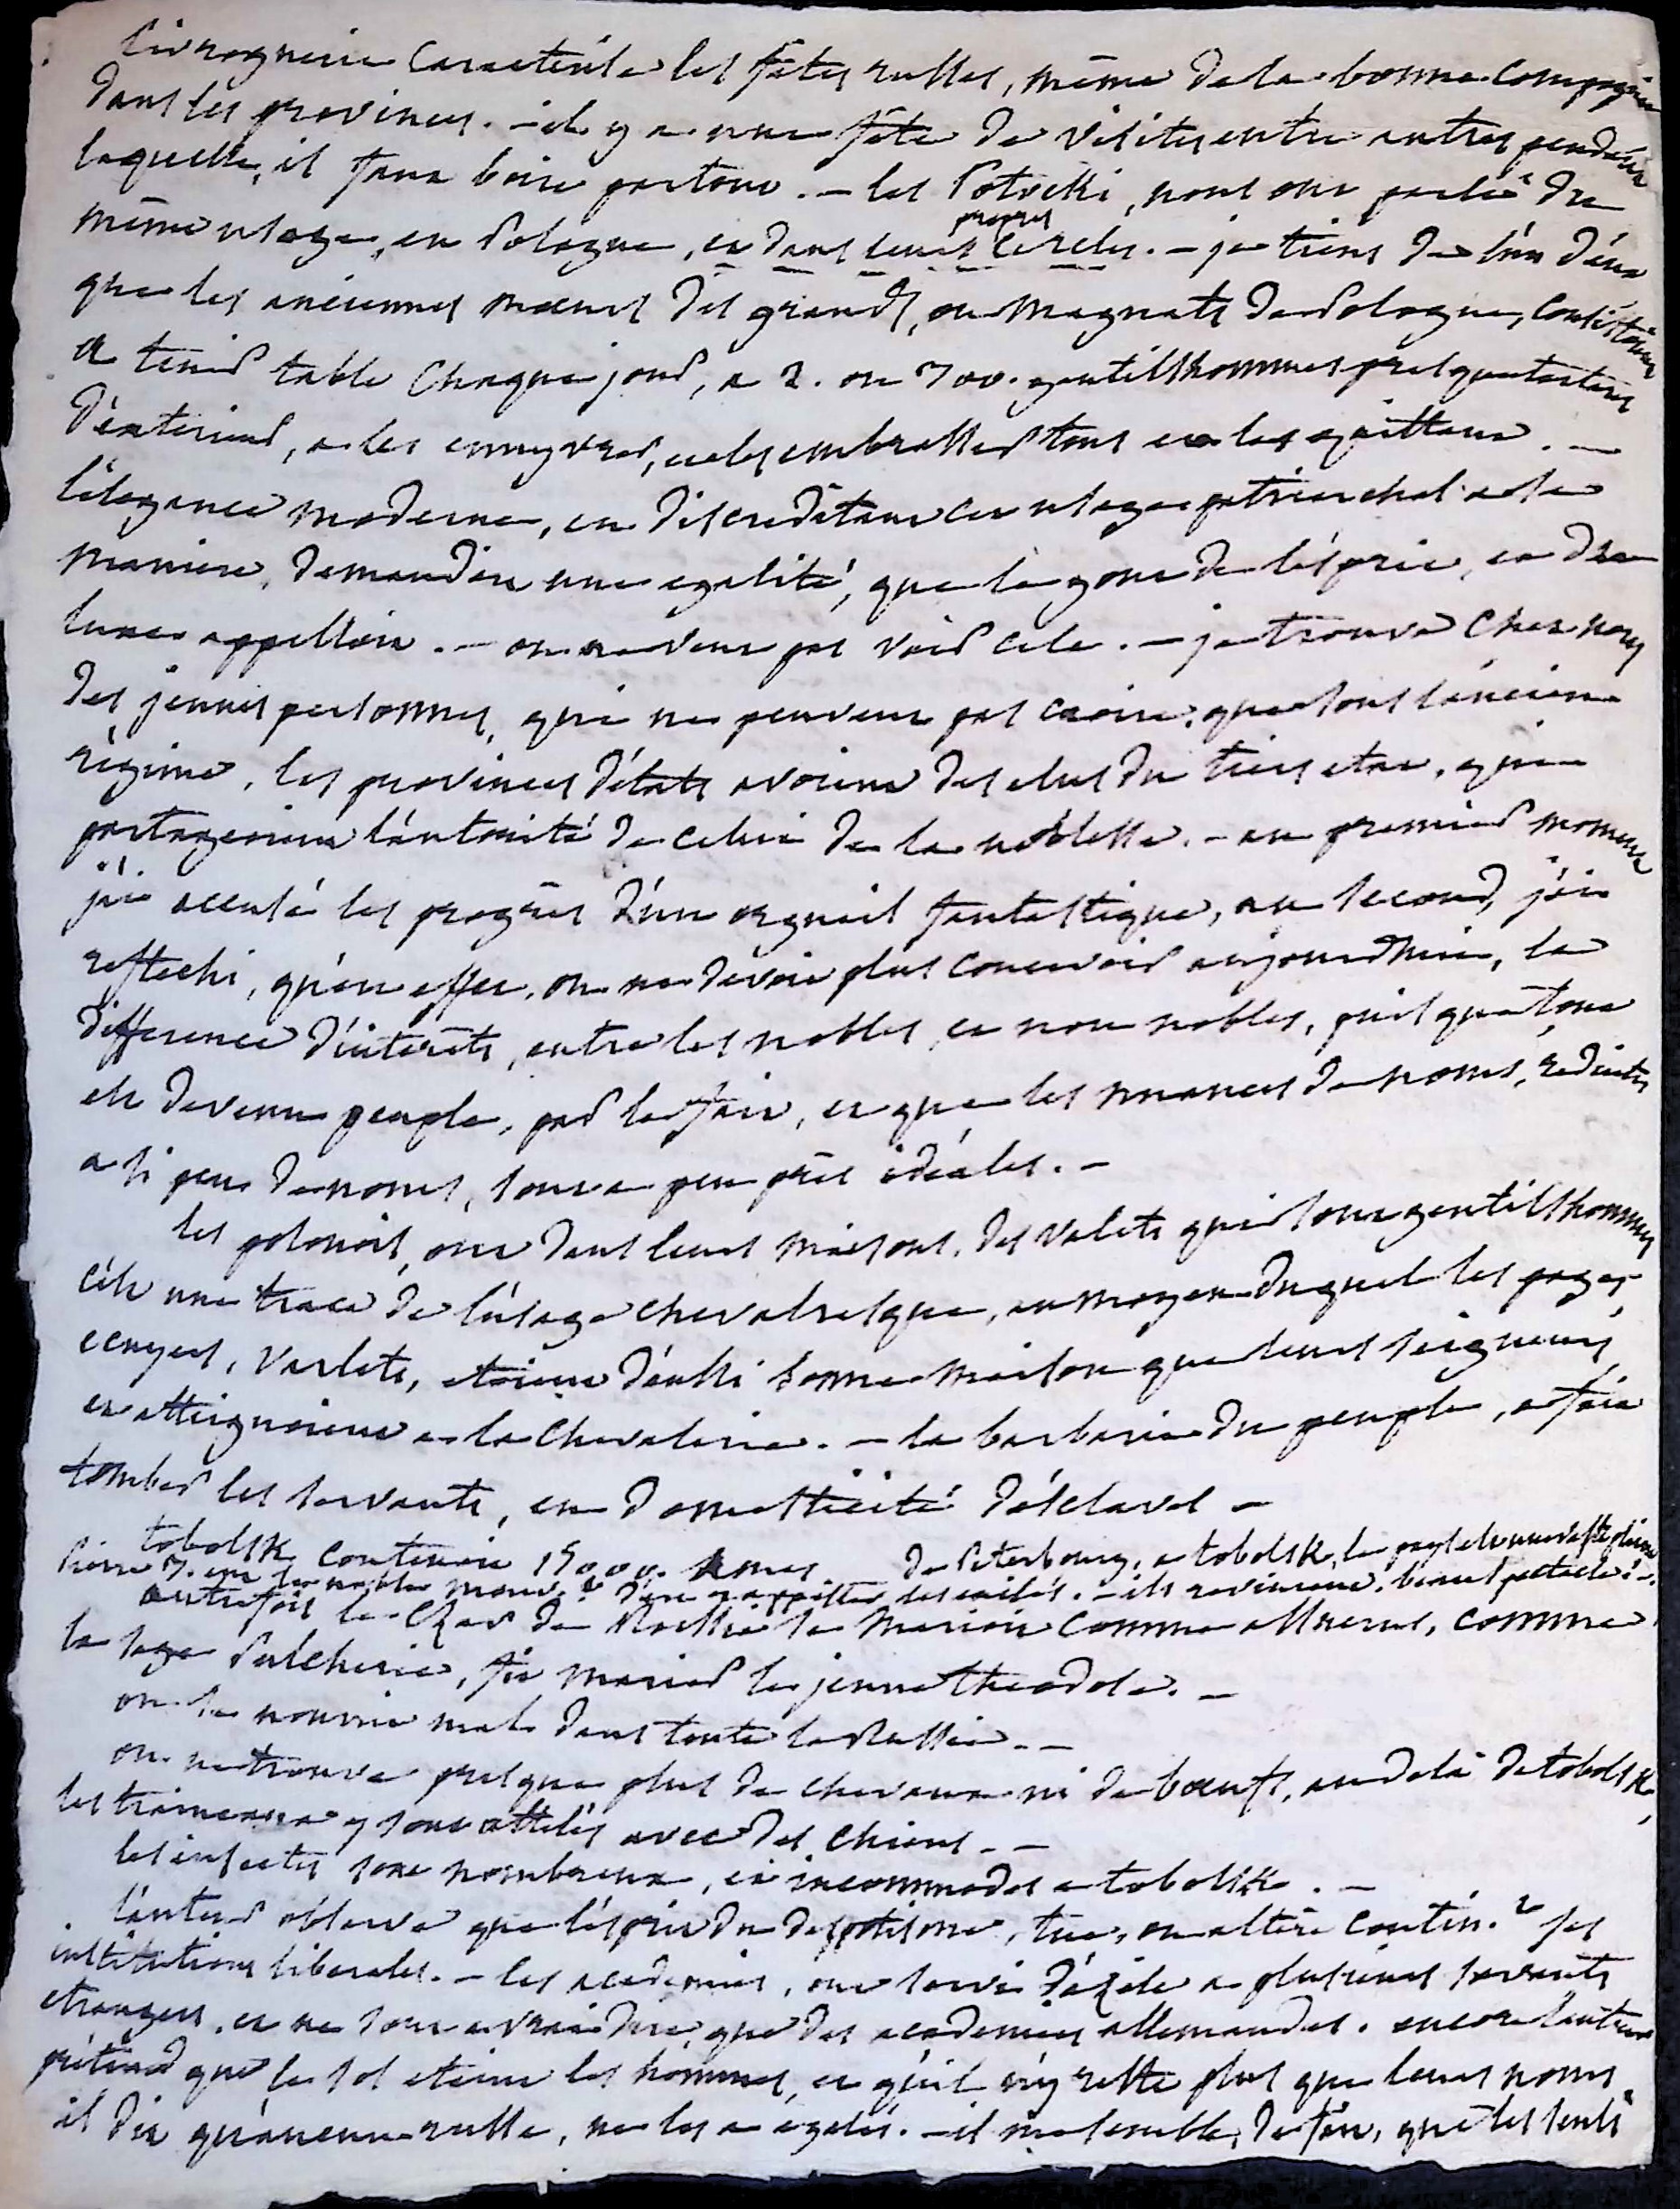 l'ivrognerie caracterise les fêtes russes, même de la bonne compagnie
dans les provinces. - il y a une fête de visites entre autres pendant
laquelle, il faut boire partout. - les Potocki, nous ont parlé du
même usage, en Pologne, et dans leurs propres cercles. - je tiens de l'un d'eux
que les anciennes mœurs des grands, ou magnats de Pologne, consistoient
a tenir table chaque jour, a 2. ou 300. gentilshommes presque tous
d'exterieur, a les ennyvrer, et a les embrasser tous en les quittant. -
l'élégance moderne, en discreditant cet usage patriarchal a sa
maniere, demandoit une egalité, que le gout de l'esprit, et du
luxe appelloit. - on ne veut pas voir cela. - je trouve chez nous
des jeunes personnes, qui ne peuvent pas croire, que sous l'ancien
régime, les provinces d'états avoient des elus du tiers etat, qui
partageoient l'autorité de celui de la noblesse. - au premier moment
j'ai accusé les progrès d'un orgueil fantastique, au second, j'ai
reflechi, qu'en effet, on ne devoit plus concevoir aujourdhui, la
différence d'intérêts, entre les nobles et non nobles, puisque tout
est devenu peuple, par le fait, et que les nuances de noms, reduites
a si peu de noms, sont a peu près idéales. -
les polonois, ont dans leurs maisons, des valets qui sont gentilshommes
c'est une trace de l'usage chevalresque, au moyen duquel les pages,
ecuyers, varlets, etoient d'aussi bonne maison que leurs seigneurs,
et atteignoient a la chevalerie. - la barbarie du peuple, a fait
tomber les servants, en domesticité d'esclaves -
tobolsk contenoit 15000. ames. de Peterbourg, a tobolsk, le pays est une vaste plaine
Pierre 3. eut le noble mouv.t d'en rappeller les exilés. - ils revinrent. beau spectacle! -
autrefois le Czar de Russie se marioit comme assuerus, comme
la sage Pulcherie, fit marier le jeune theodose. -
on se nourrit mal dans toute la Russie. -
on ne trouve presque plus de chevaux ni de bœufs, au delà de tobolsk,
les traineaux y sont attelés avec des chiens. -
les insectes sont nombreux, et incommodes a tobolsk. -
l'auteur observe que l'esprit du despotisme, tue, ou altère contin.t les
institutions liberales. - les academies, ont servi d'azile a plusieurs savants
etrangers, et ne sont a vrai dire, que des academies allemandes. encore l'auteur
prétend que le sol eteint les hommes, et qu'il n'y reste plus que leurs noms.
il dit qu'aucun russe, ne les a egalés. - il me semble, de fait, que les seuls